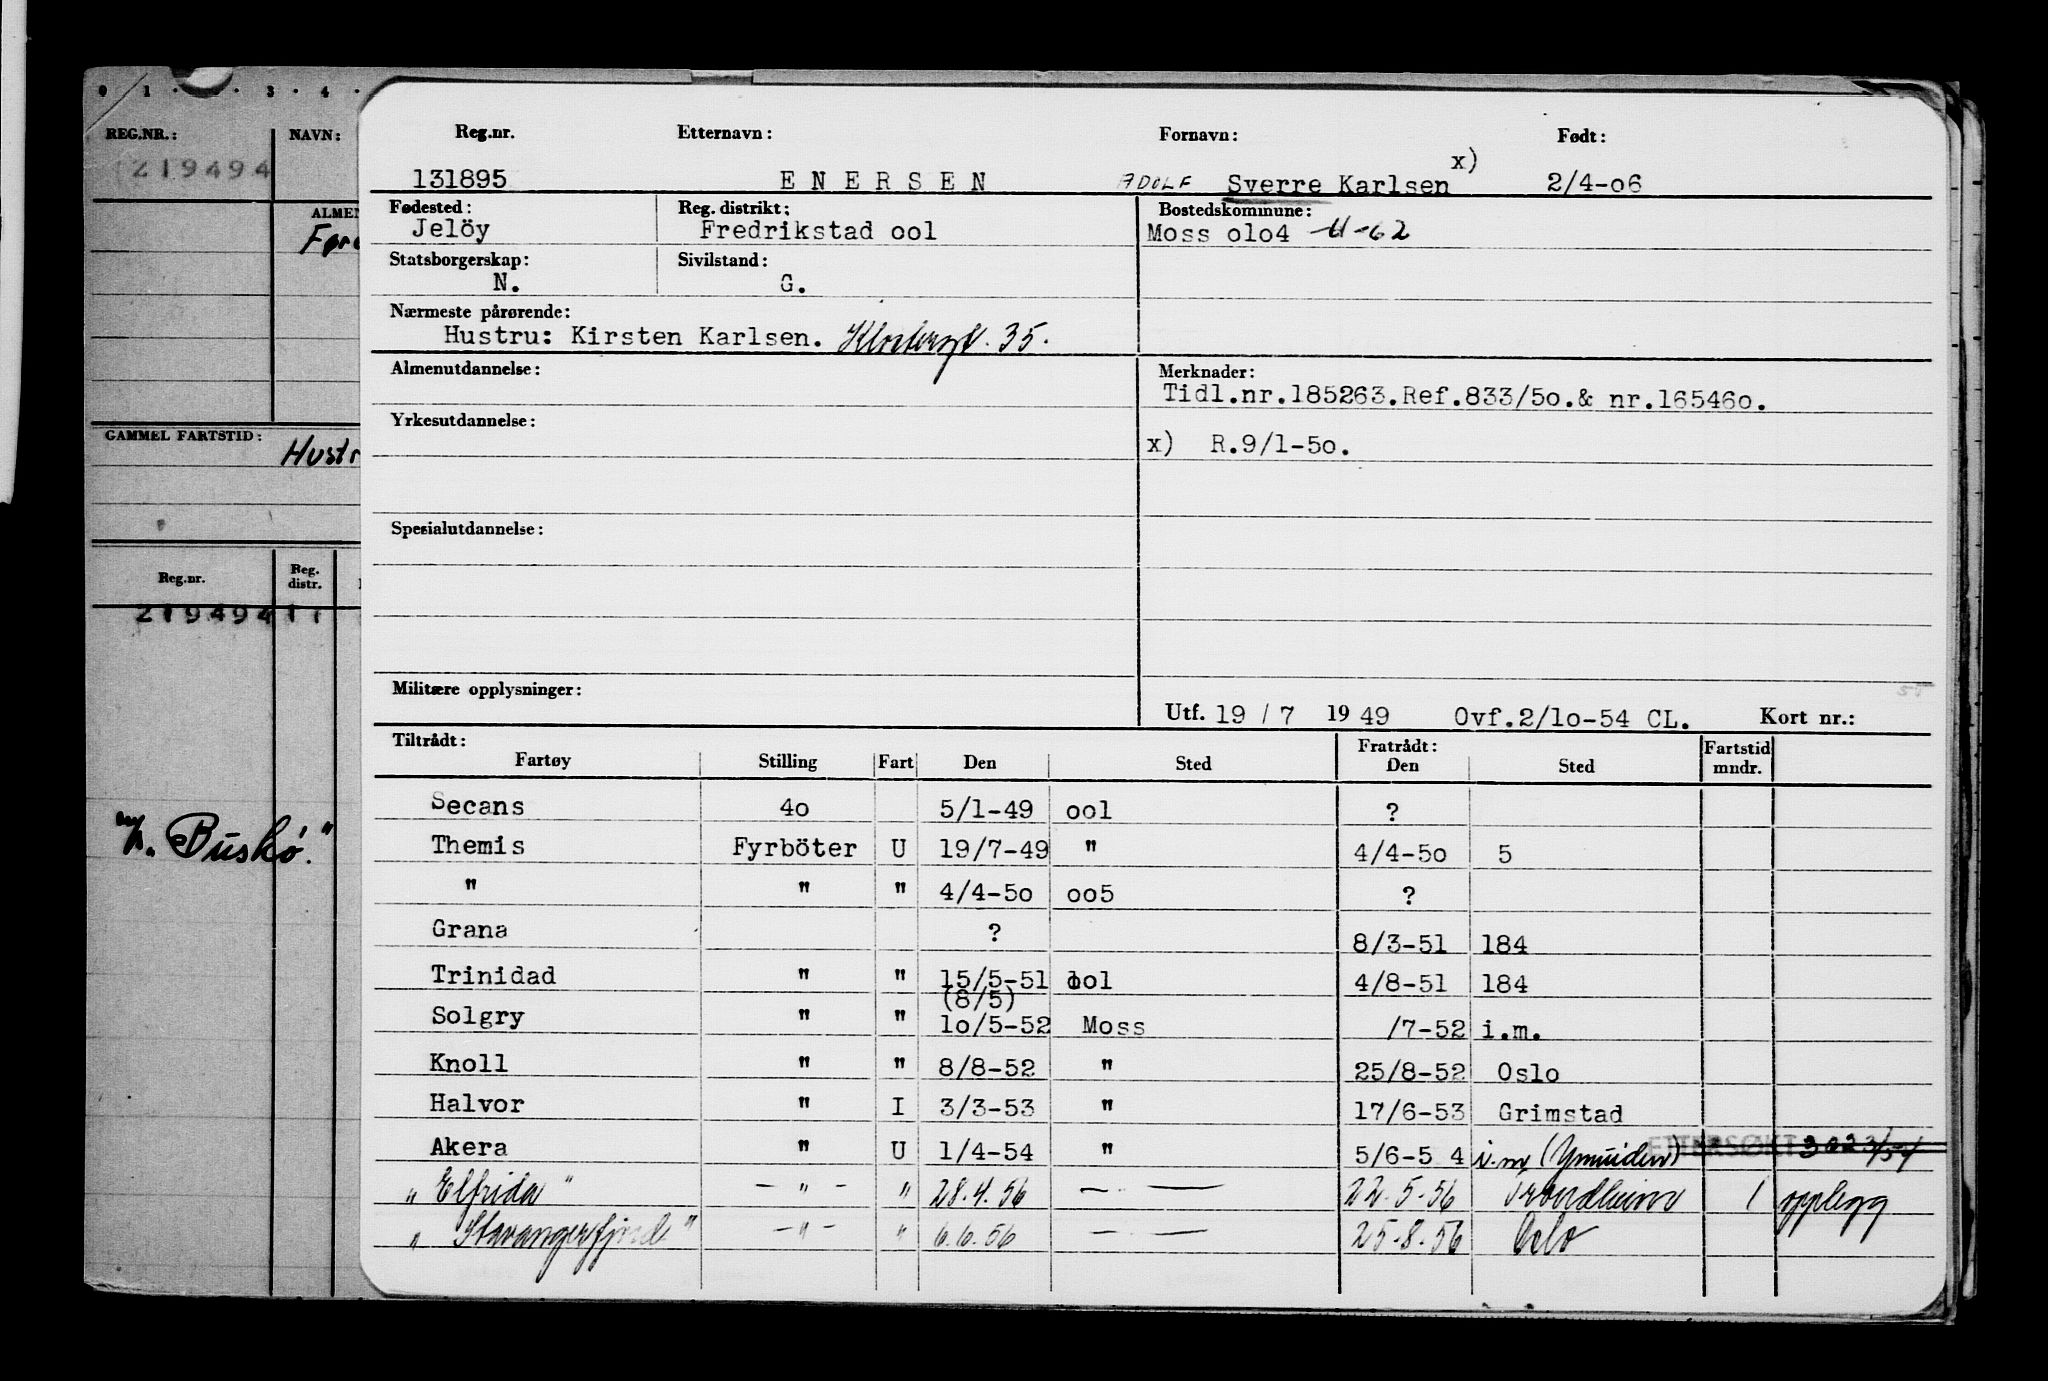 0 1 · · 3 · 4 ·
REG.NR.: NAVN:
219494
ALMEN
Føre
GAMMEL FARTSTID:
Hustr
Reg.nr. Reg. distr.
219494 11
M/K. "Buskø."
Reg.nr. Etternavn: Fornavn: Født:
131895 ENERSEN ADOLF Sverre Karlsen x) 2/4-o6
Fødested: Reg. distrikt: Bostedskommune:
Jelöy Fredrikstad ool Moss olo4 -11-62
Statsborgerskap: Sivilstand:
N. G.
Nærmeste pårørende:
Hustru: Kirsten Karlsen. Klostergt. 35.
Almenutdannelse: Merknader:
Tidl.nr.185263.Ref.833/5o.& nr.16546o.
Yrkesutdannelse:
x) R.9/1-5o.
Spesialutdannelse:
Militære opplysninger:
Utf. 19 / 7 19 49 Ovf.2/1o-54 CL. Kort nr.:
Tiltrådt: Fratrådt: Fartstid
Fartøy Stilling Fart Den Sted Den Sted mndr.
Secans 4o 5/1-49 ool ?
Themis Fyrböter U 19/7-49 " 4/4-5o 5
" " " 4/4-5o oo5 ?
Grana ? 8/3-51 184
Trinidad " " 15/5-51 ool 4/8-51 184
(8/5)
Solgry " " 1o/5-52 Moss /7-52 i.m.
Knoll " " 8/8-52 " 25/8-52 Oslo
Halvor " I 3/3-53 " 17/6-53 Grimstad
Akera " U 1/4-54 " 5/6-5 4 i.m (Ymuiden) ETTERSØKT 3023/54
" Elfrida " - " - " 28.4.56 - — 22.5.56 Trondheim 1 opplegg
" Stavangerfjord " - " - " 6.6.56 - — 25.8.56 Oslo